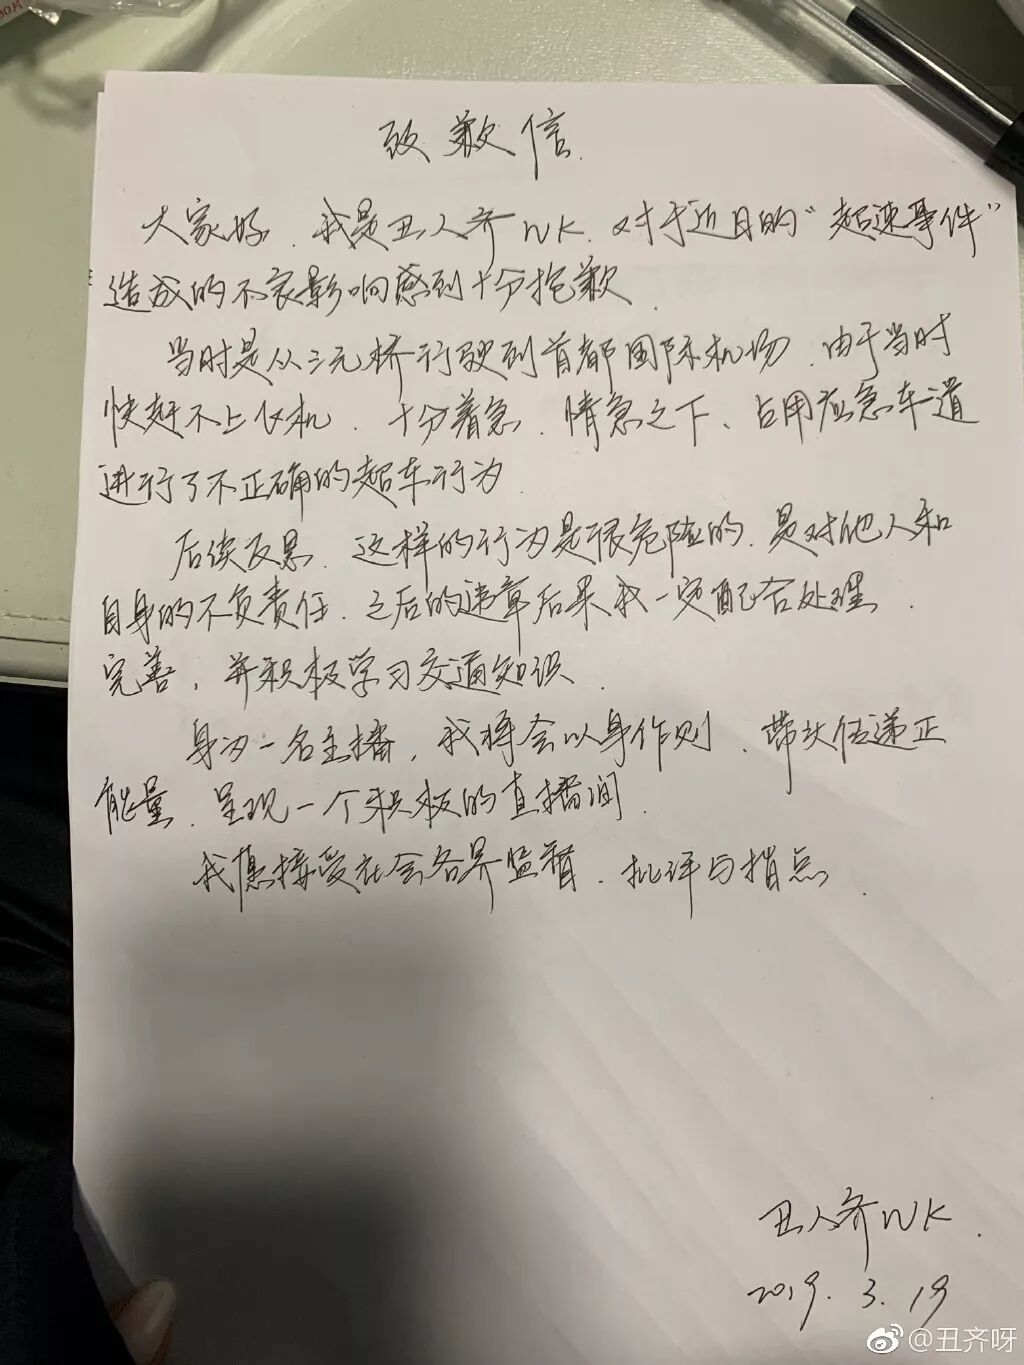 致歉信.
大家好.我是丑人齐WK.对于近日的“超速事件”
造成的不良影响感到十分抱歉.
当时是从三元桥行驶到首都国际机场.由于当时
快赶不上飞机.十分着急.情急之下、占用应急车道
进行了不正确的超车行为.
后续反思.这样的行为是很危险的.是对他人和
自身的不负责任.之后的违章后果我一定配合处理
完善,并积极学习交通知识.
身为一名主播,我将会以身作则.带头传递正
能量.呈现一个积极的直播间.
我愿接受社会各界监督.批评与指点.
丑人齐WK.
2019.3.19
@丑齐呀